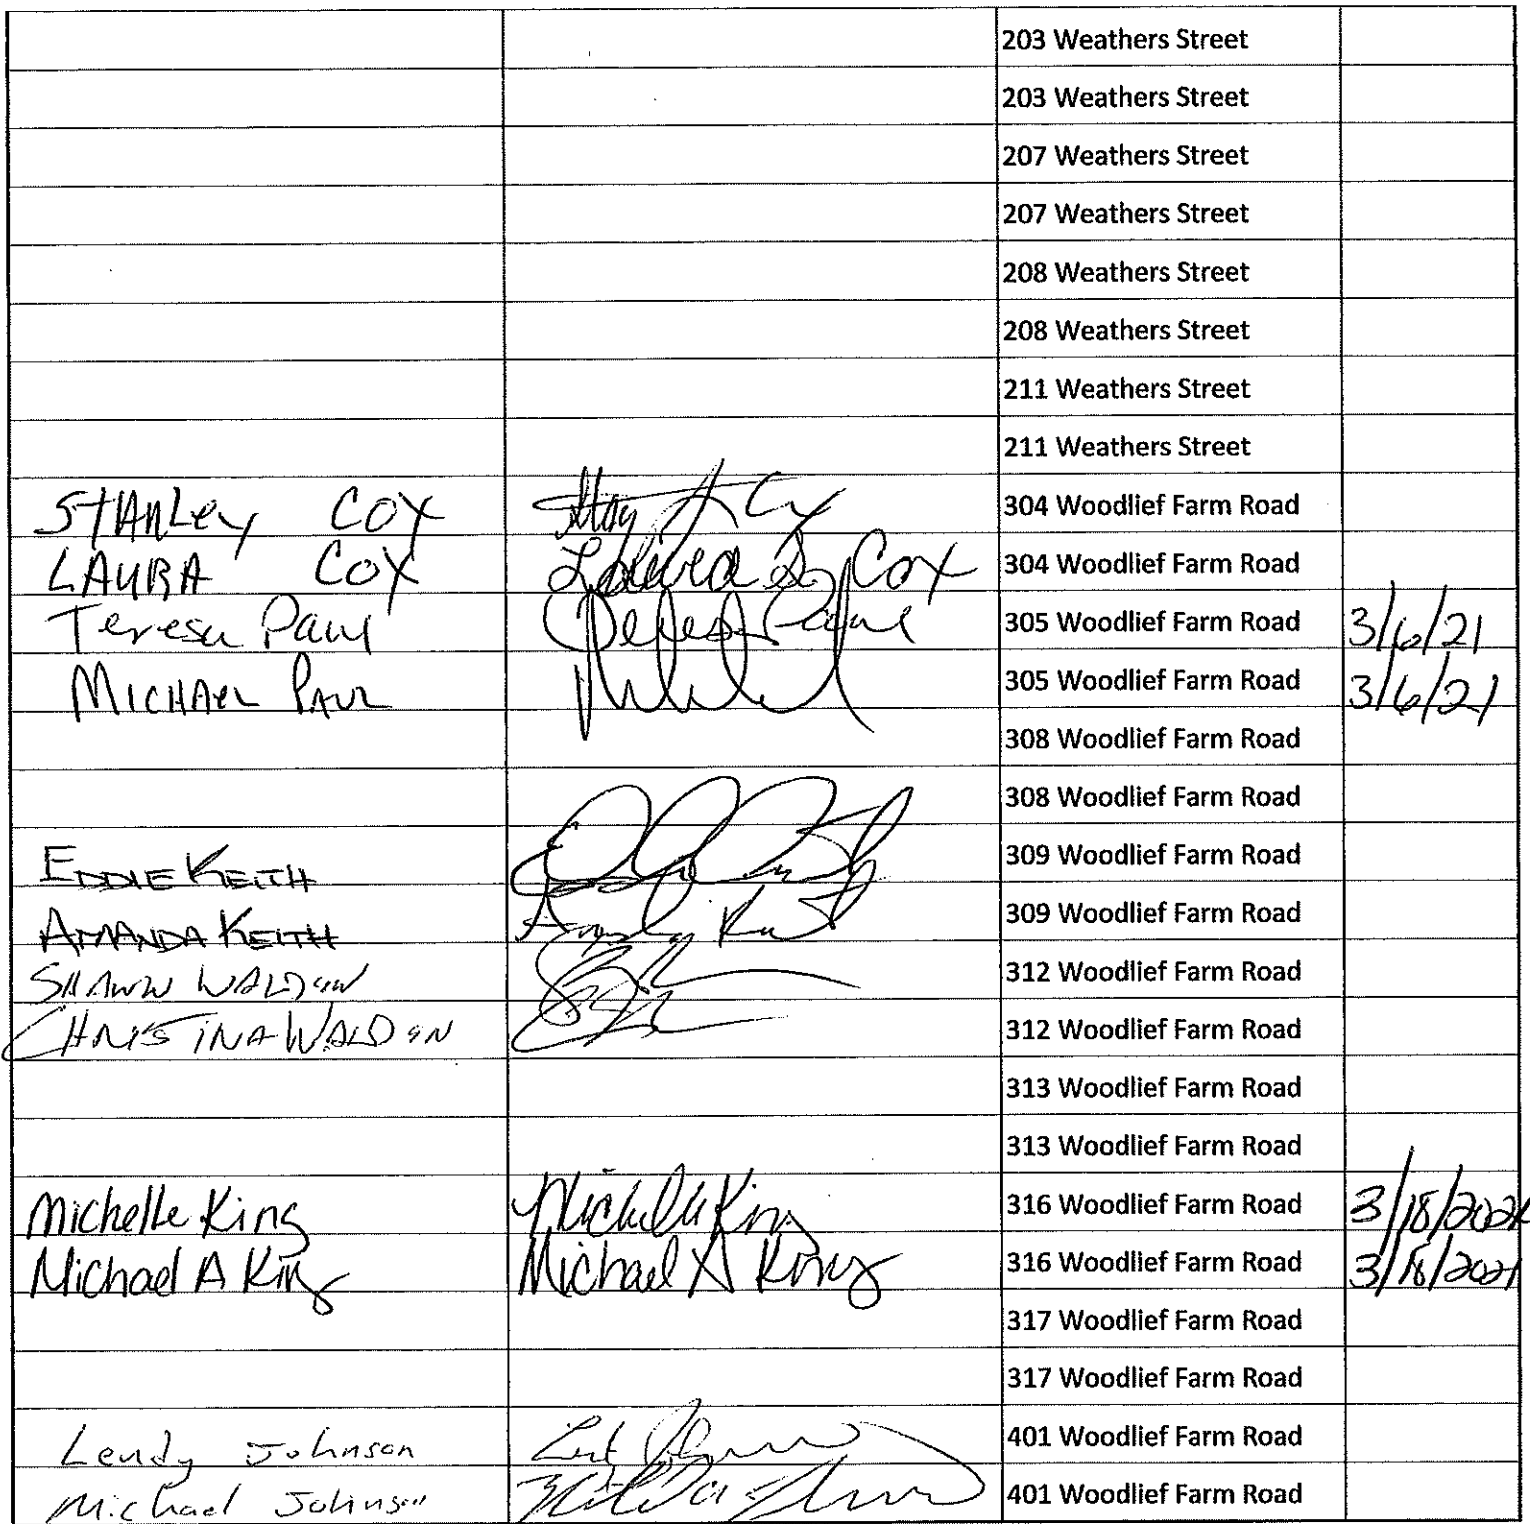 203 Weathers Street
203 Weathers Street
207 Weathers Street
207 Weathers Street
208 Weathers Street
208 Weathers Street
211 Weathers Street
211 Weathers Street
STANLEY COX 304 Woodlief Farm Road
LAURA COX Laura S Cox 304 Woodlief Farm Road
Teresa Paul Teresa Paul 305 Woodlief Farm Road 3/6/21
MICHAEL PAUL 305 Woodlief Farm Road 3/6/21
308 Woodlief Farm Road
308 Woodlief Farm Road
EDDIE KEITH 309 Woodlief Farm Road
AMANDA KEITH 309 Woodlief Farm Road
SHAWN WALDEN 312 Woodlief Farm Road
CHRISTINA WALDEN 312 Woodlief Farm Road
313 Woodlief Farm Road
313 Woodlief Farm Road
Michelle King Michelle King 316 Woodlief Farm Road 3/18/2021
Michael A King Michael A King 316 Woodlief Farm Road 3/18/2021
317 Woodlief Farm Road
317 Woodlief Farm Road
Lendy Johnson 401 Woodlief Farm Road
Michael Johnson 401 Woodlief Farm Road